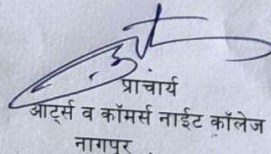 प्राचार्य
आर्ट्स व कॉमर्स नाईट कॉलेज
नागपूर